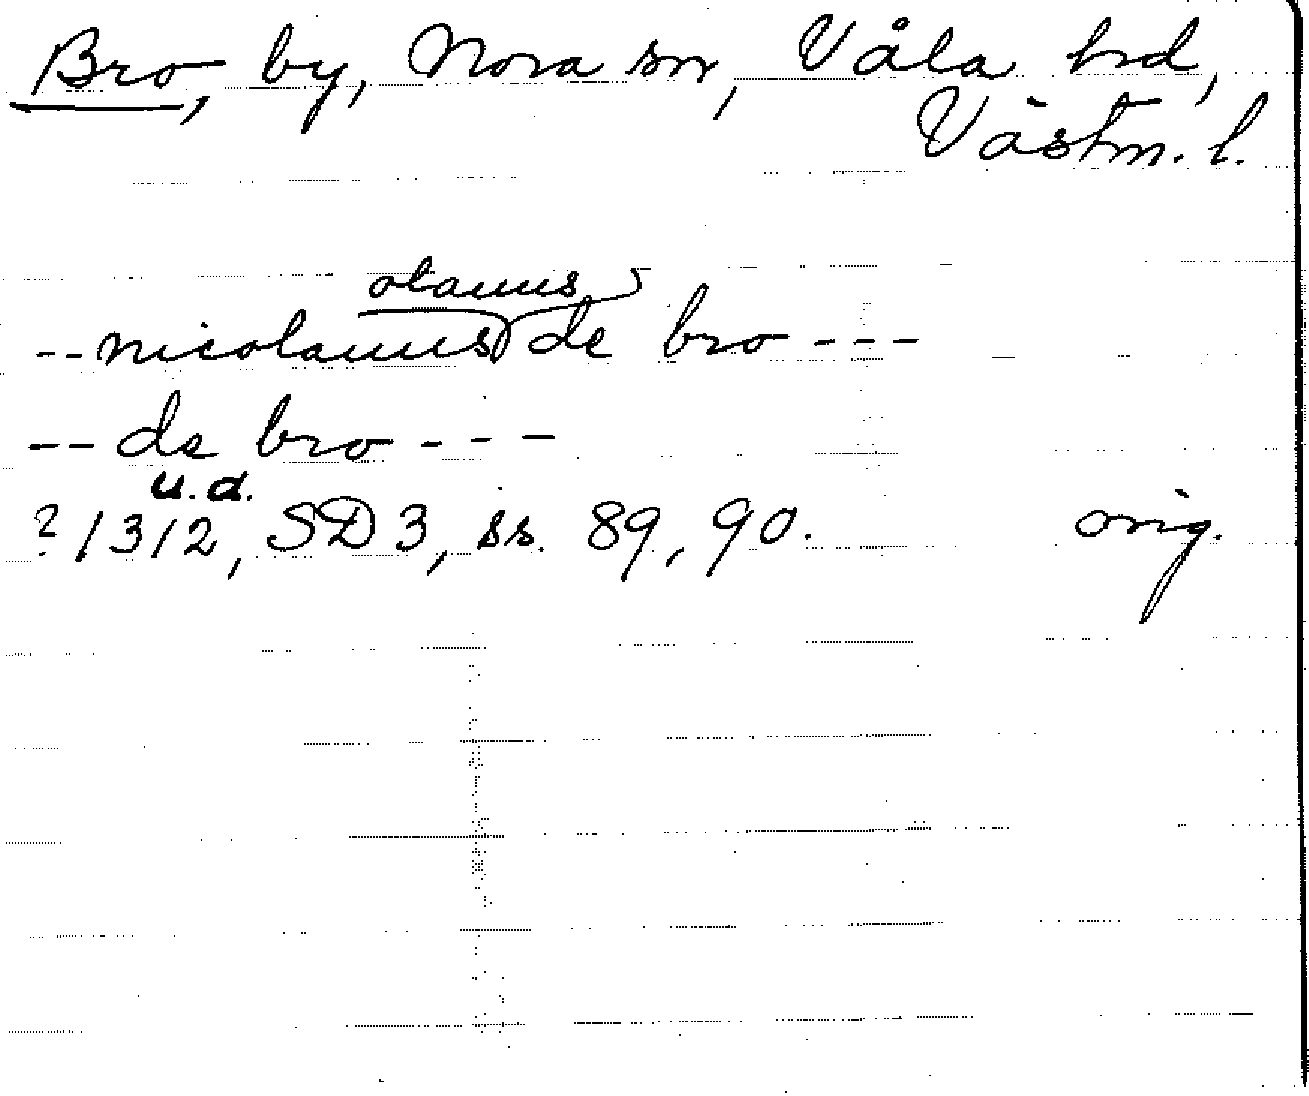 Bro, by, Nora sn, Våla hd,
Västm. l.
olauus
-- nicolauus de bro ---
-- de bro ---
u.d.
? 1312, SD 3, ss. 89, 90. orig.